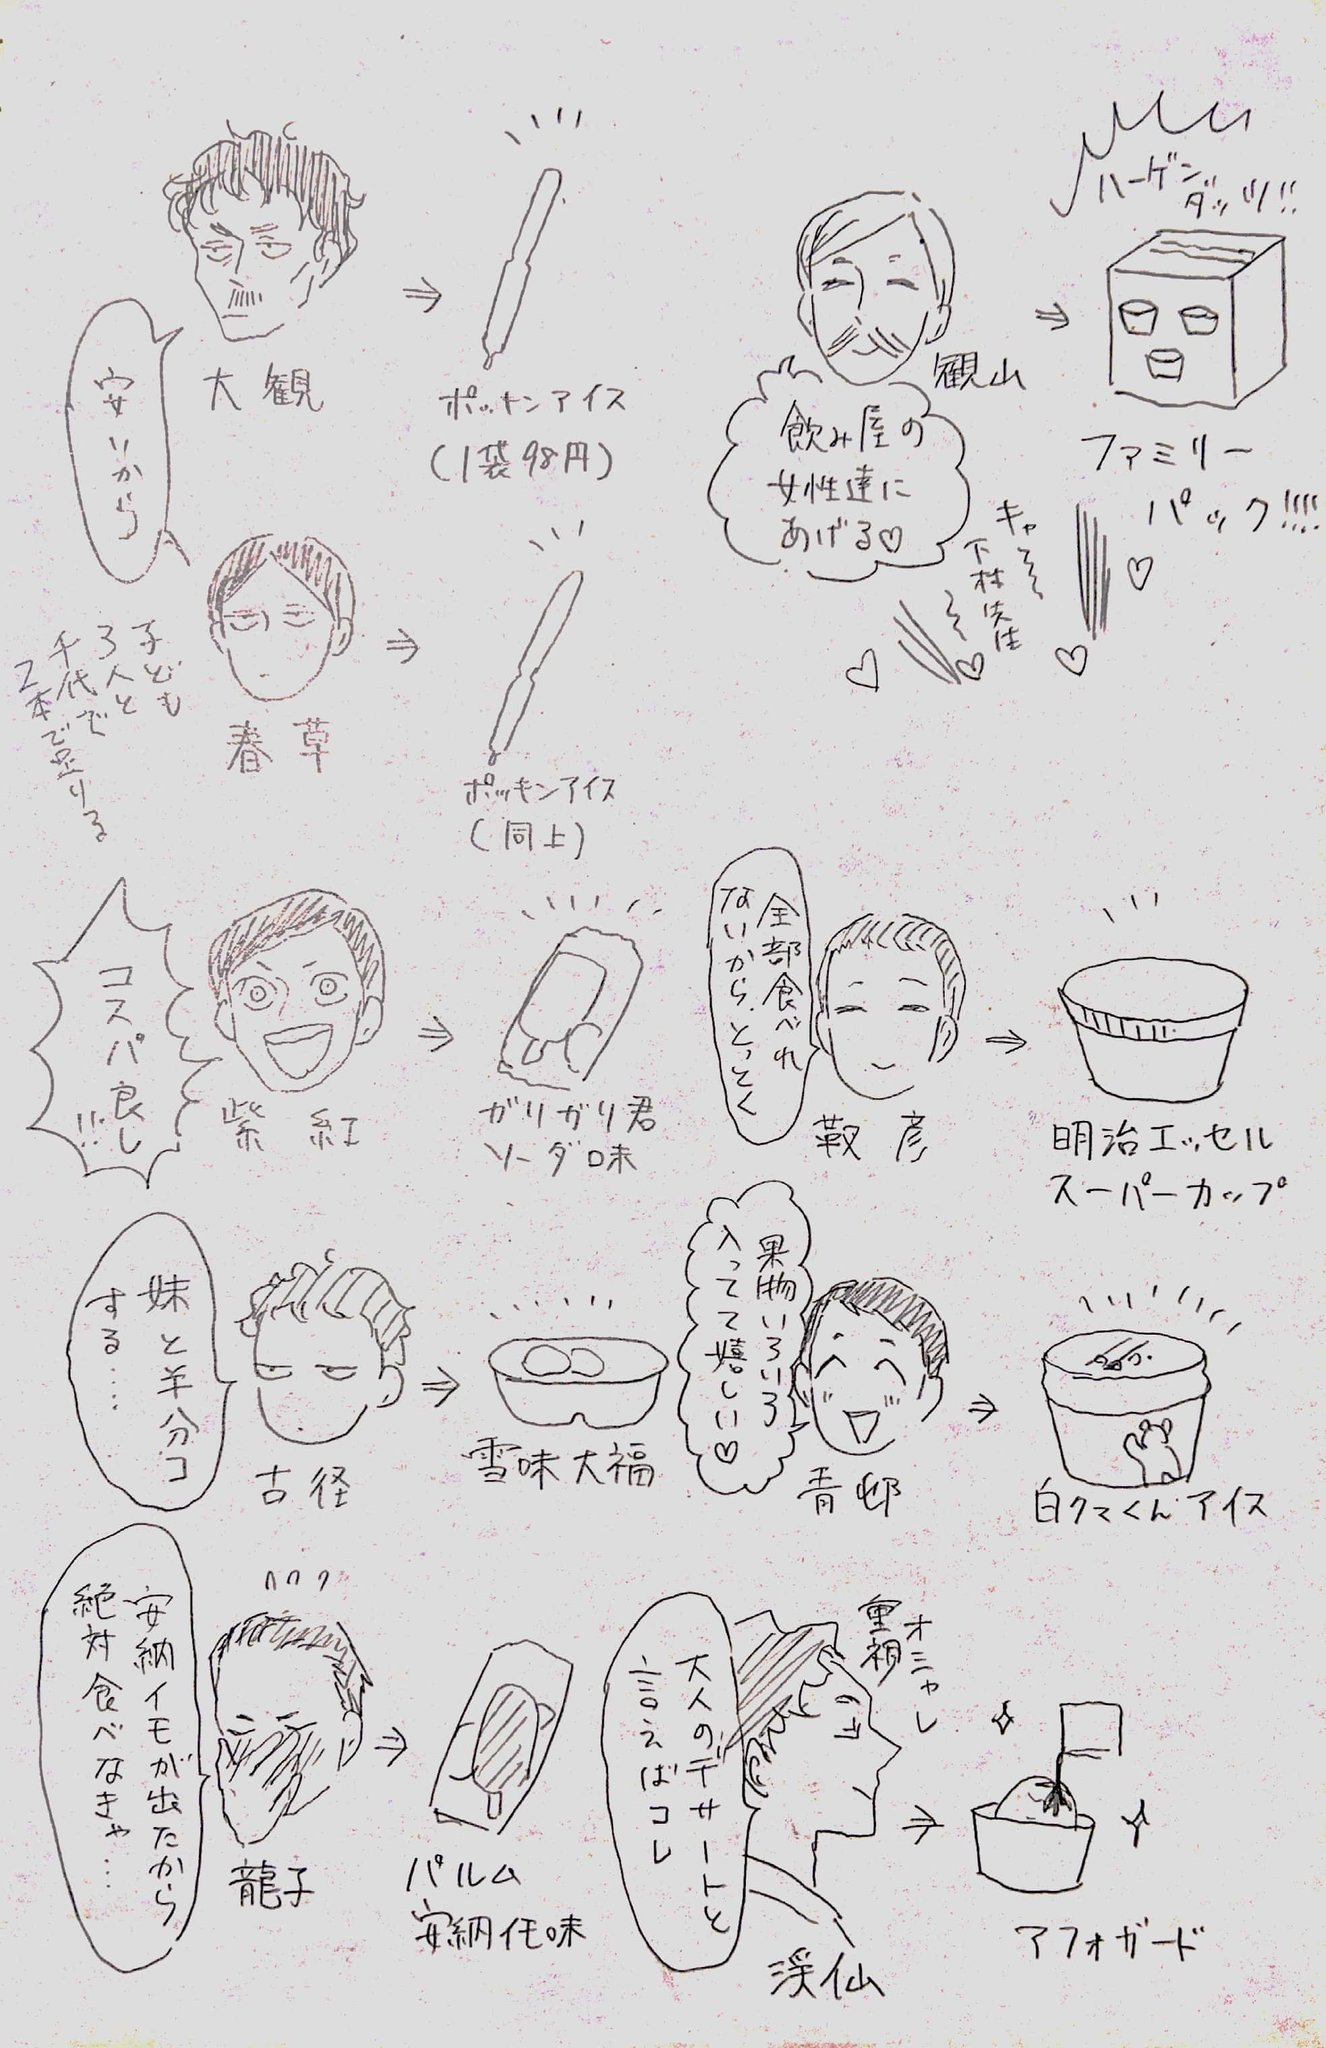 大観
安いから
ポッキンアイス
(1袋98円)
ハーゲン
ダッツ!!
観山
飲み屋の
女性達に
あげる♡
ファミリー
パック!!!!
キャ~~
下村先生
~~
春草
子ども
3人と
千代で
2本で足りる
ポッキンアイス
(同上)
紫紅
コスパ良し
!!
ガリガリ君
ソーダ味
全部食べれ
ないから、とっとく
靫彦
明治エッセル
スーパーカップ
妹と半分コ
する……
古径
雪味大福
果物いろいろ
入ってて嬉しい♡
青邨
白クマくんアイス
安納イモが出たから
絶対食べなきゃ…
龍子
パルム
安納イモ味
大人のデザートと
言えばコレ
オシャレ
重視
渓仙
アフォガード